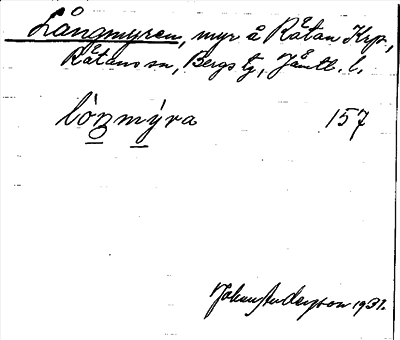 Långmyren, myr å Råtan Krp.,
Råtans sn, Bergs tg, Jämtl. l.
lòŋmýra 157
Johans Andersson 1931.